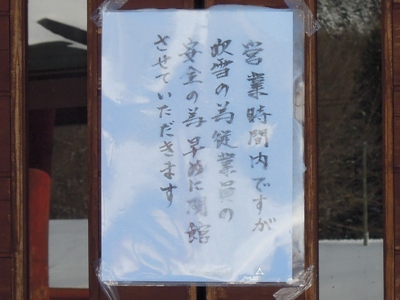 営業時間内ですが
吹雪の為従業員の
安全の為早めに閉館
させていただきます